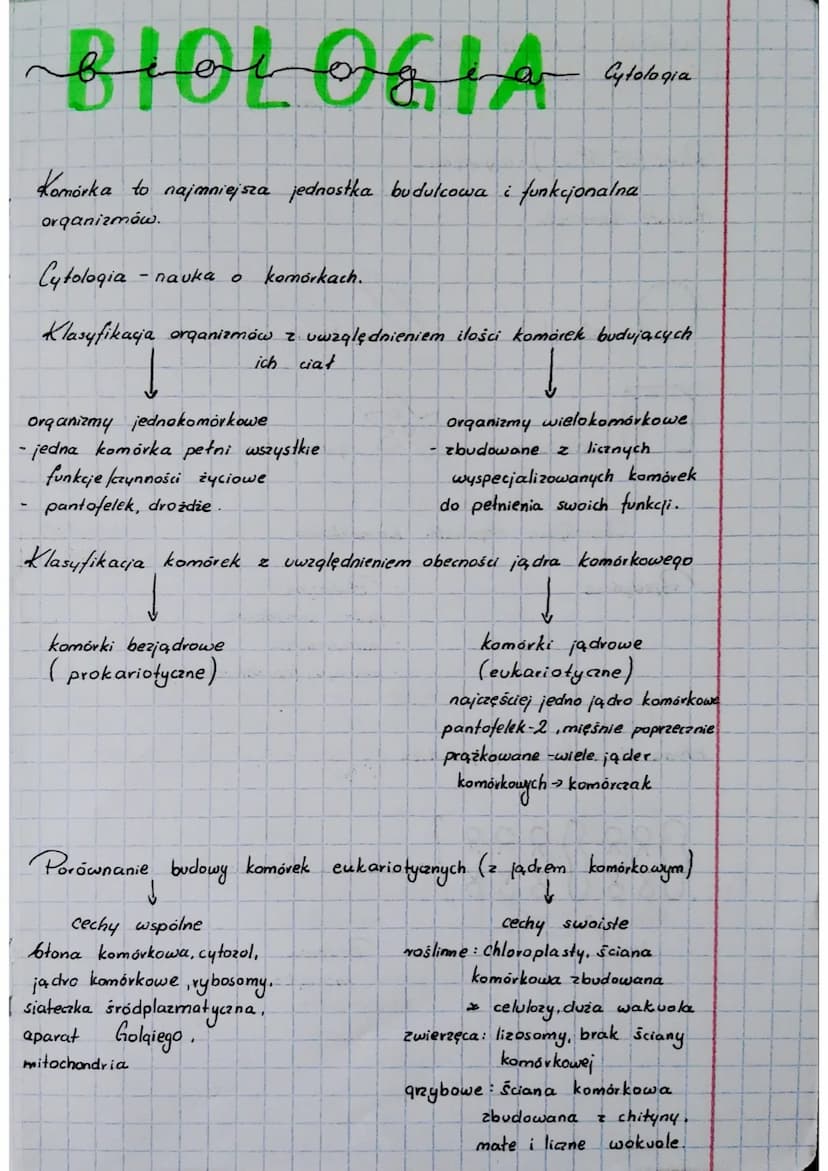 BIOLOGIA
biologia
Cytologia
Komórka to najmniejsza jednostka budulcowa i funkcjonalna
organizmów.
Cytologia - nauka o komórkach.
Klasyfikacja organizmów z uwzględnieniem ilości komórek budujących
ich ciał
organizmy jednokomórkowe
- jedna komórka pełni wszystkie
funkcje/czynności życiowe
- pantofelek, drożdże.
organizmy wielokomórkowe
- zbudowane z licznych
wyspecjalizowanych komórek
do pełnienia swoich funkcji.
Klasyfikacja komórek z uwzględnieniem obecności jądra komórkowego
komórki bezjądrowe
(prokariotyczne)
komórki jądrowe
(eukariotyczne)
najczęściej jedno jądro komórkowe
pantofelek-2, mięśnie poprzecznie
prążkowane -wiele jąder
komórkowych → komórczak
Porównanie budowy komórek eukariotycznych (z jądrem komórkowym)
cechy wspólne
błona komórkowa, cytozol,
jądro komórkowe, rybosomy,
siateczka śródplazmatyczna,
aparat Golgiego,
mitochondria
cechy swoiste
roślinne: Chloroplasty, ściana
komórkowa zbudowana
z celulozy, duża wakuola
zwierzęca: lizosomy, brak ściany
komórkowej
grzybowe: ściana komórkowa
zbudowana z chityny.
małe i liczne wokuole.